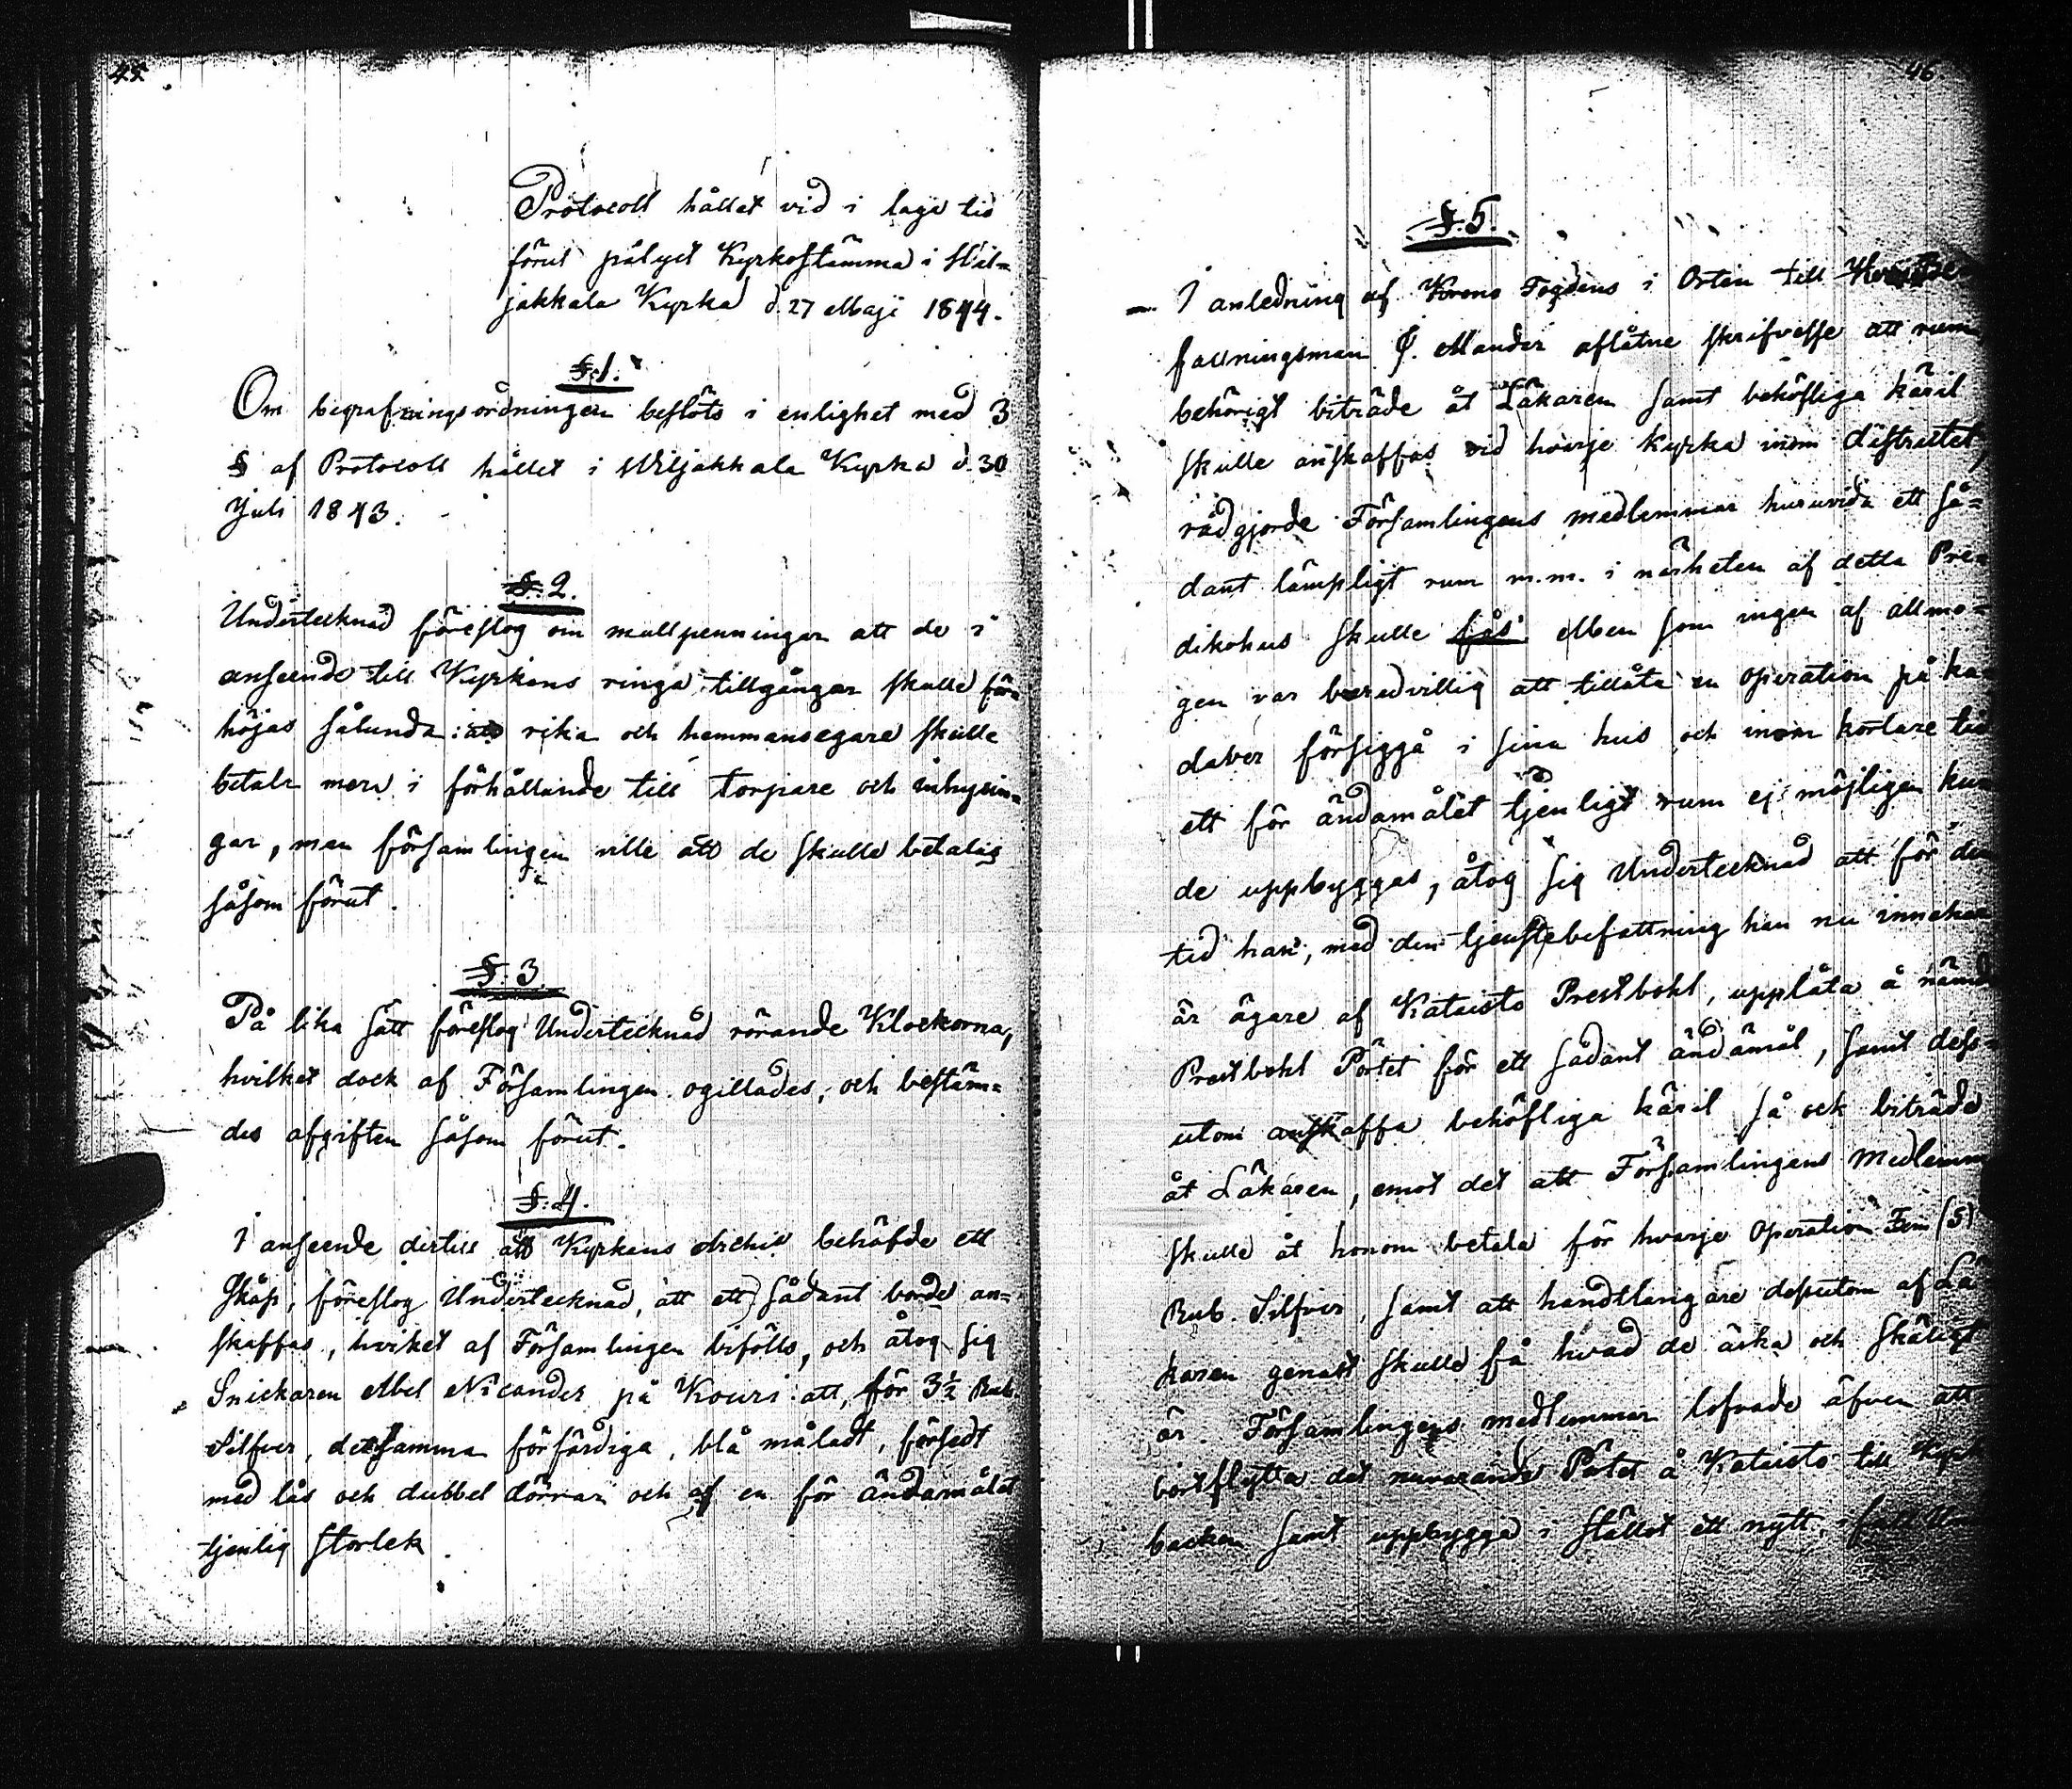 45.
Protocoll hållet vid i laga tid
förut pålyst Kyrkostämma i Wil=
jakkala Kyrka d. 27 Maji 1844.
§. 1.
Om begrafningsordningen beslöts i enlighet med 3
§ af Protocoll hållet i Wiljakkala Kyrka d. 30
Juli 1843.
§. 2.
Undertecknad föreslog om mullpenningar att de i
anseende till Kyrkans ringa tillgångar skulle för
höjas sålunda: att rika och hemmansegare skulle
betala mera i förhållande till torpare och inhysin=
gar, men församlingen ville att de skulle betalas
såsom förut.
§. 3.
På lika sätt föreslog Undertecknad rörande Klockorna,
hvilket dock af Församlingen ogillades, och bestäm=
des afgiften såsom förut.
§. 4.
I anseende dertill att Kyrkans Archiv behöfde ett
Skåp, föreslog Undertecknad, att ett sådant borde an=
skaffas, hvilket af Församlingen bifölls, och åtog sig
Snickaren Abel Nicander på Kouri att, för 3½ Rub.
Silfver, detsamma förfärdiga, blå måladt, försedt
med lås och dubbel dörrar och af en för ändamålet
tjenlig storlek.
46.
§. 5.
I anledning af Krono Fogdens i Orten till
fallningsman J. Mander aflåtne skrifvelse att rum
behörigt biträde åt Läkaren samt behöfliga käril
skulle anskaffas vid hvarje kyrka inom distractet,
rådgjorde Församlingens medlemmar huruvida ett så=
dant lämpligt rum m.m. i närheten af detta Pre=
dikohus skulle fås. Men som ingen af allmo=
gen var beredvillig att tillåta en operation på ka=
daver försiggå i sina hus och inom kortare tid
ett för ändamålet tjenligt rum ej möjligen kun
de uppbyggas, åtog sig Undertecknad att för den
tid han, med den tjenstebefattning han nu innehar
är ägare af Kataisto Prestbohl, upplåta å nämda
Prestbohl Pörtet för ett sådant ändamål, samt dess=
utom anskaffa behöfliga käril så ock biträde
åt Läkaren, emot det att Församlingens Medlemm
skulle åt honom betala för hvarje Operation Fem (5)
Rub. Silfver, samt att handtlangare dessutom af Lä
karen genast skulle få hvad de äska och skäligt
är. Församlingens medlemmar lofvade äfven att
bortflytta det nuvarande Pörtet å Kataisto till Kyrk
backen samt uppbygga i stället ett nytt, i fall Un